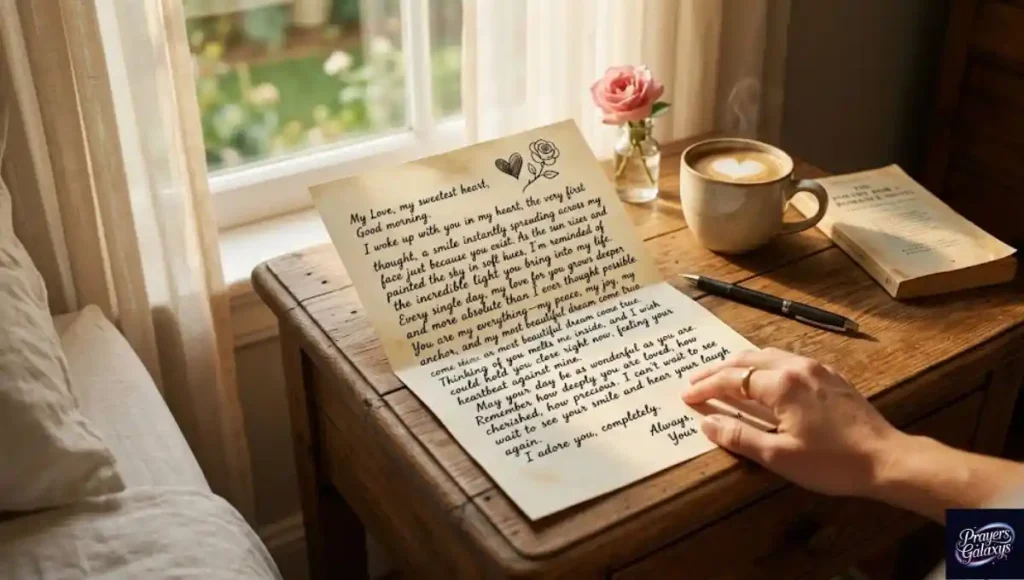 My Love, my sweetest heart,
Good morning.
I woke up with you in my heart, the very first
thought, a smile instantly spreading across my
face just because you exist. As the sun rises and
painted the sky in soft hues, I'm reminded of
the incredible light you bring into my life.
Every single day, my love for you grows deeper
and more absolute than I ever thought possible
You are my everything—my peace, my joy, my
anchor, and my most beautiful dream come true
come as most beautiful dream come true.
Thinking of you melts me inside, and I wish
could held you close right now, feeling your
heartbeat against mine.
May your day be as wonderful as you are.
Remember how deeply you are loved, how
cherished, how precious. I can't wait to see
wait to see your smile and hear your laugh
again.
I adore you, completely.
Always
Your
Prayers
Galaxys